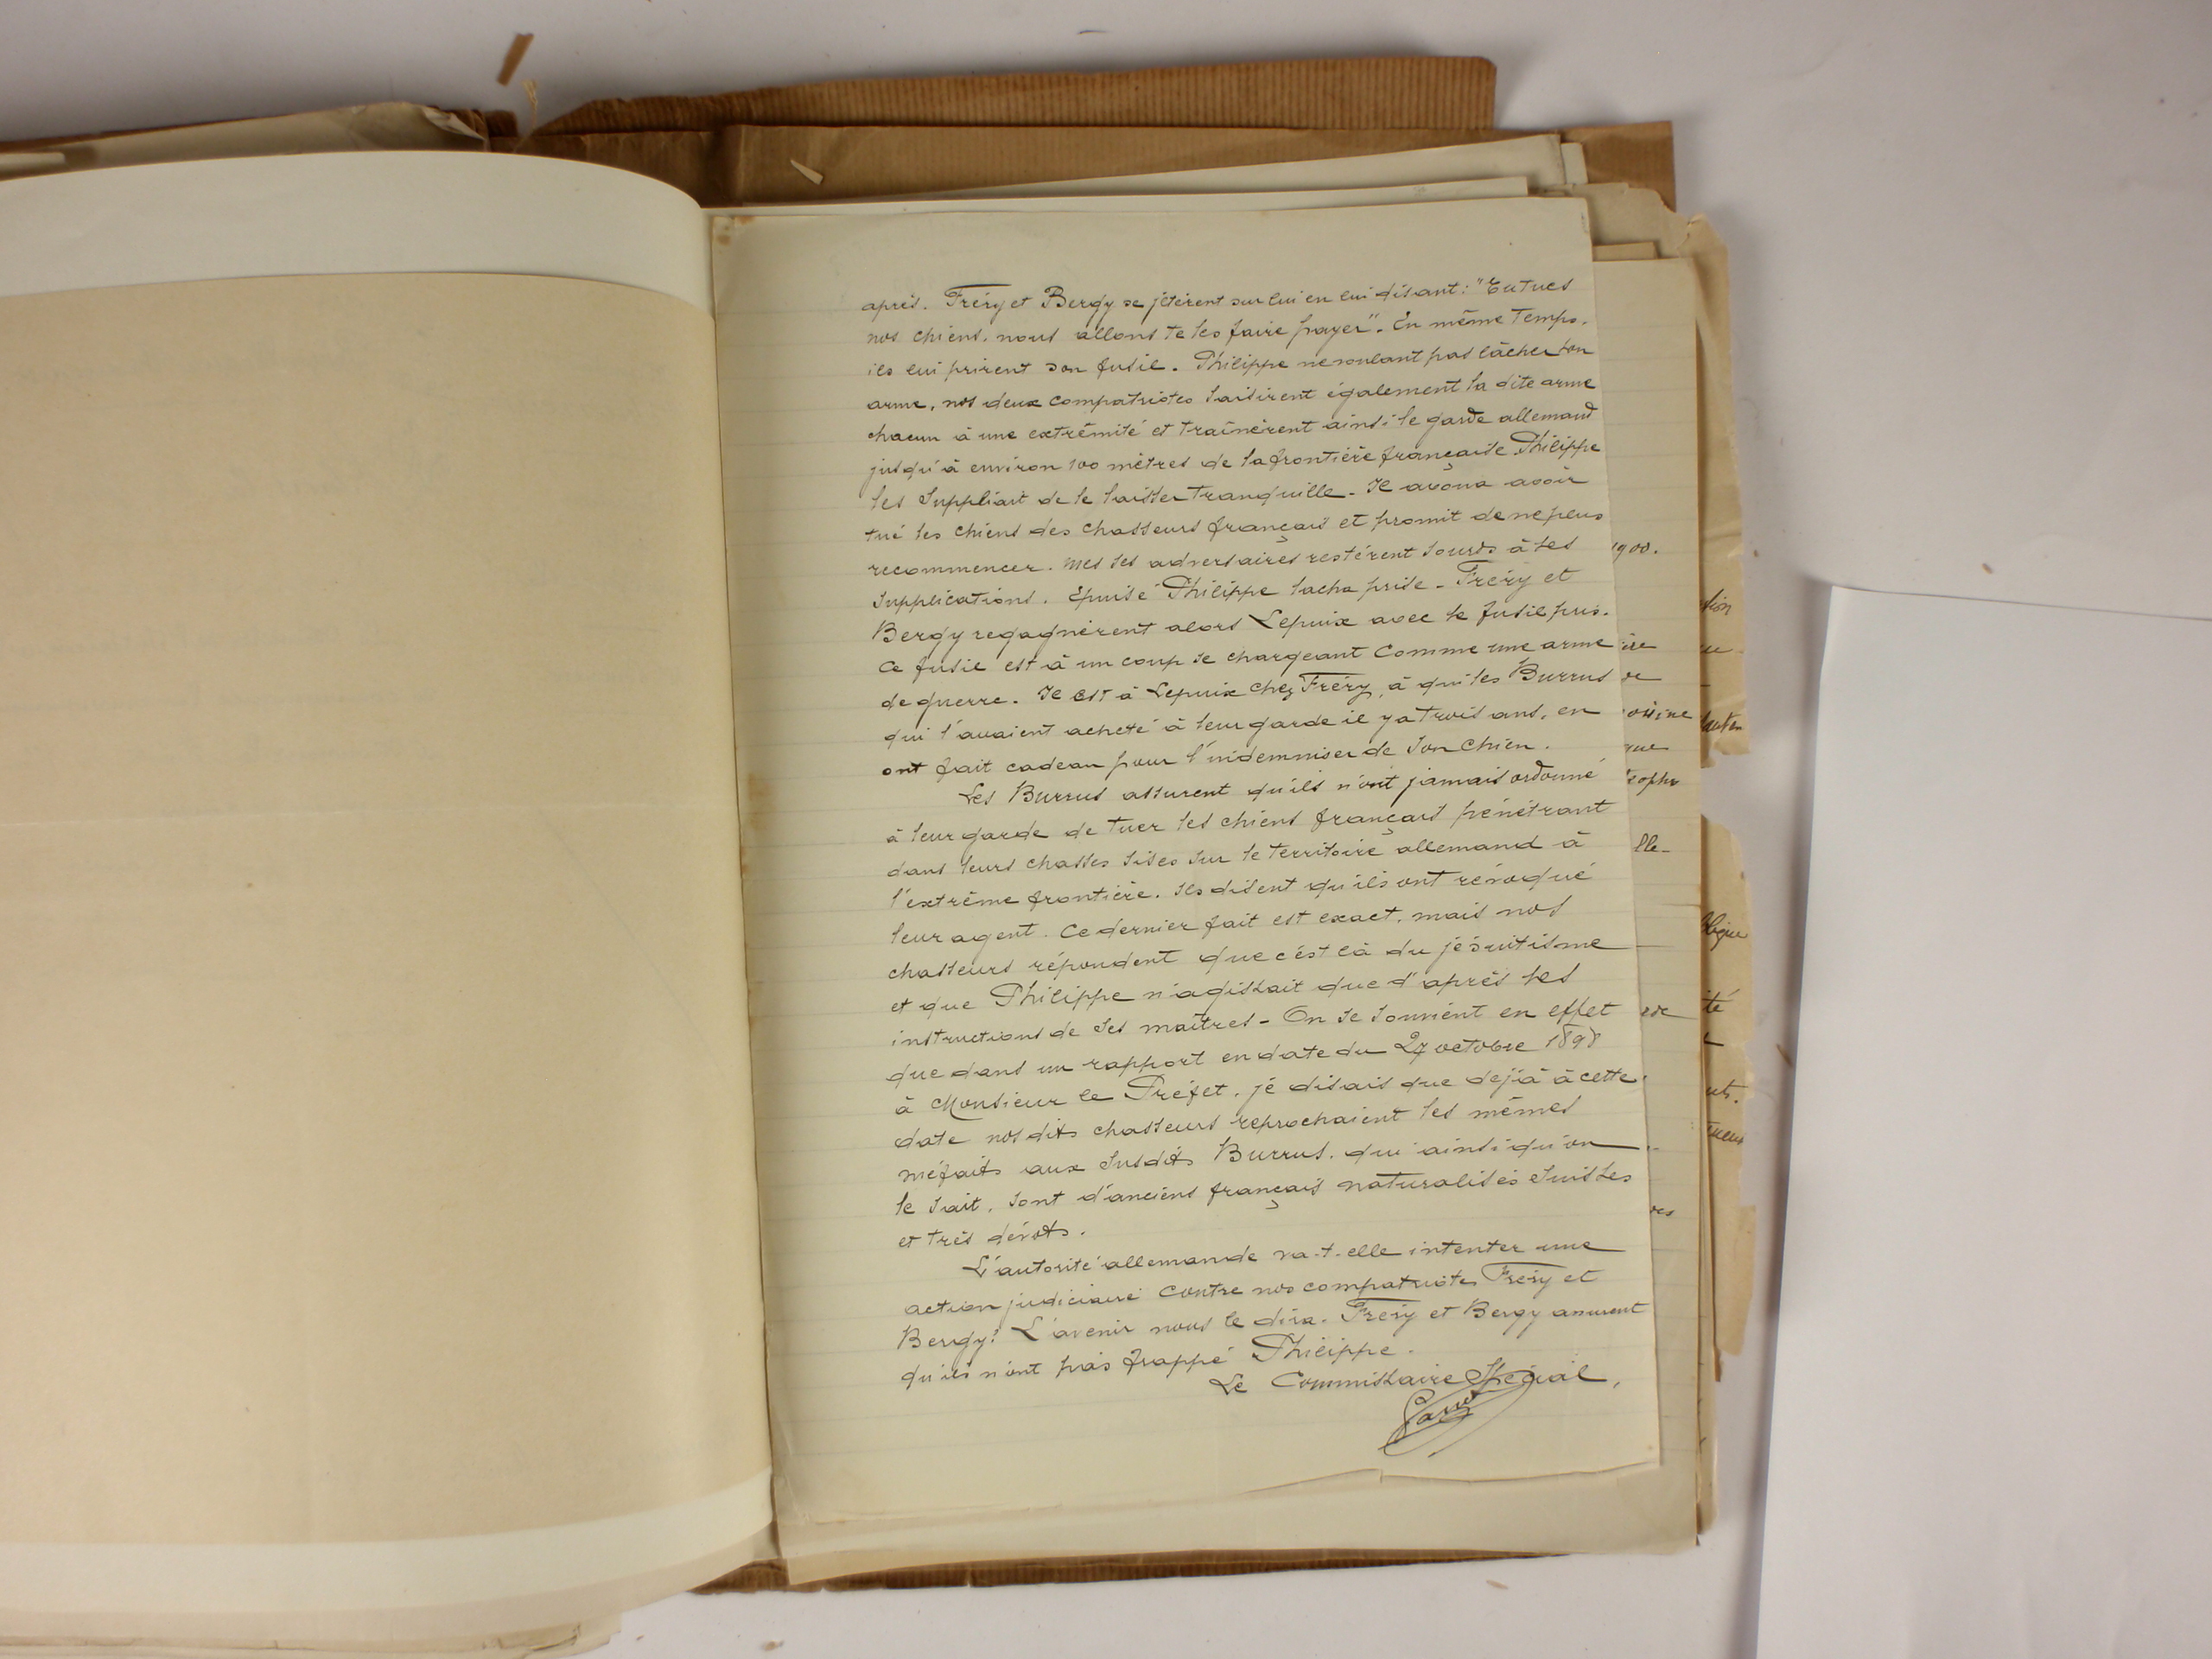 après. Fréry et Bergy se jetèrent sur lui en lui disant: "Tu tues
nos chiens, nous allons te les faire payer". En même temps,
ils lui prirent son fusil. Philippe ne voulant pas lâcher son
arme, nos deux compatriotes saisirent également la dite arme
chacun à une extrémité et traînèrent ainsi le garde allemand
jusqu'à environ 100 mètres de la frontière française. Philippe
les suppliait de le laisser tranquille. Il avoua avoir
tué les chiens des chasseurs français et promit de ne plus
recommencer. Mes ses adversaires restèrent sourds à ses
supplications. Epuisé Philippe lacha prise. Fréry et
Bergy regagnèrent alors Lepuix avec le fusil pris.
Ce fusil est à un coup se chargeant comme une arme
de guerre. Il est à Lepuix chez Fréry, à qui les Burrus
qui l'avaient acheté à leur garde il y a trois ans, en
ont fait cadeau pour l'indemniser de son chien.
Les Burrus assurent qu'ils n'ont jamais ordonné
à leur garde de tuer les chiens français pénétrant
dans leurs chasses sises sur le territoire allemand à
l'extrême frontière. Ils disent qu'ils ont révoqué
leur agent. Ce dernier fait est exact, mais nos
chasseurs répondent que c'est là du jésuitisme
et que Philippe n'agissait que d'après les
instructions de ses maîtres - On se souvient en effet
que dans un rapport en date du 27 octobre 1898
à Monsieur le Préfet, je disais que dejà à cette
date nos dits chasseurs reprochaient les mêmes
méfaits aux susdits Burrus, qui ainsi qu'on
le sait, sont d'anciens français naturalisés suisses
et très dévots.
L'autorité allemande va-t-elle intenter une
action judiciaire contre nos compatriotes Fréry et
Bergy? L'avenir nous le dira. Fréry et Bergy assurent
qu'ils n'ont pas frappé Philippe.
Le Commissaire Spécial,
1900.